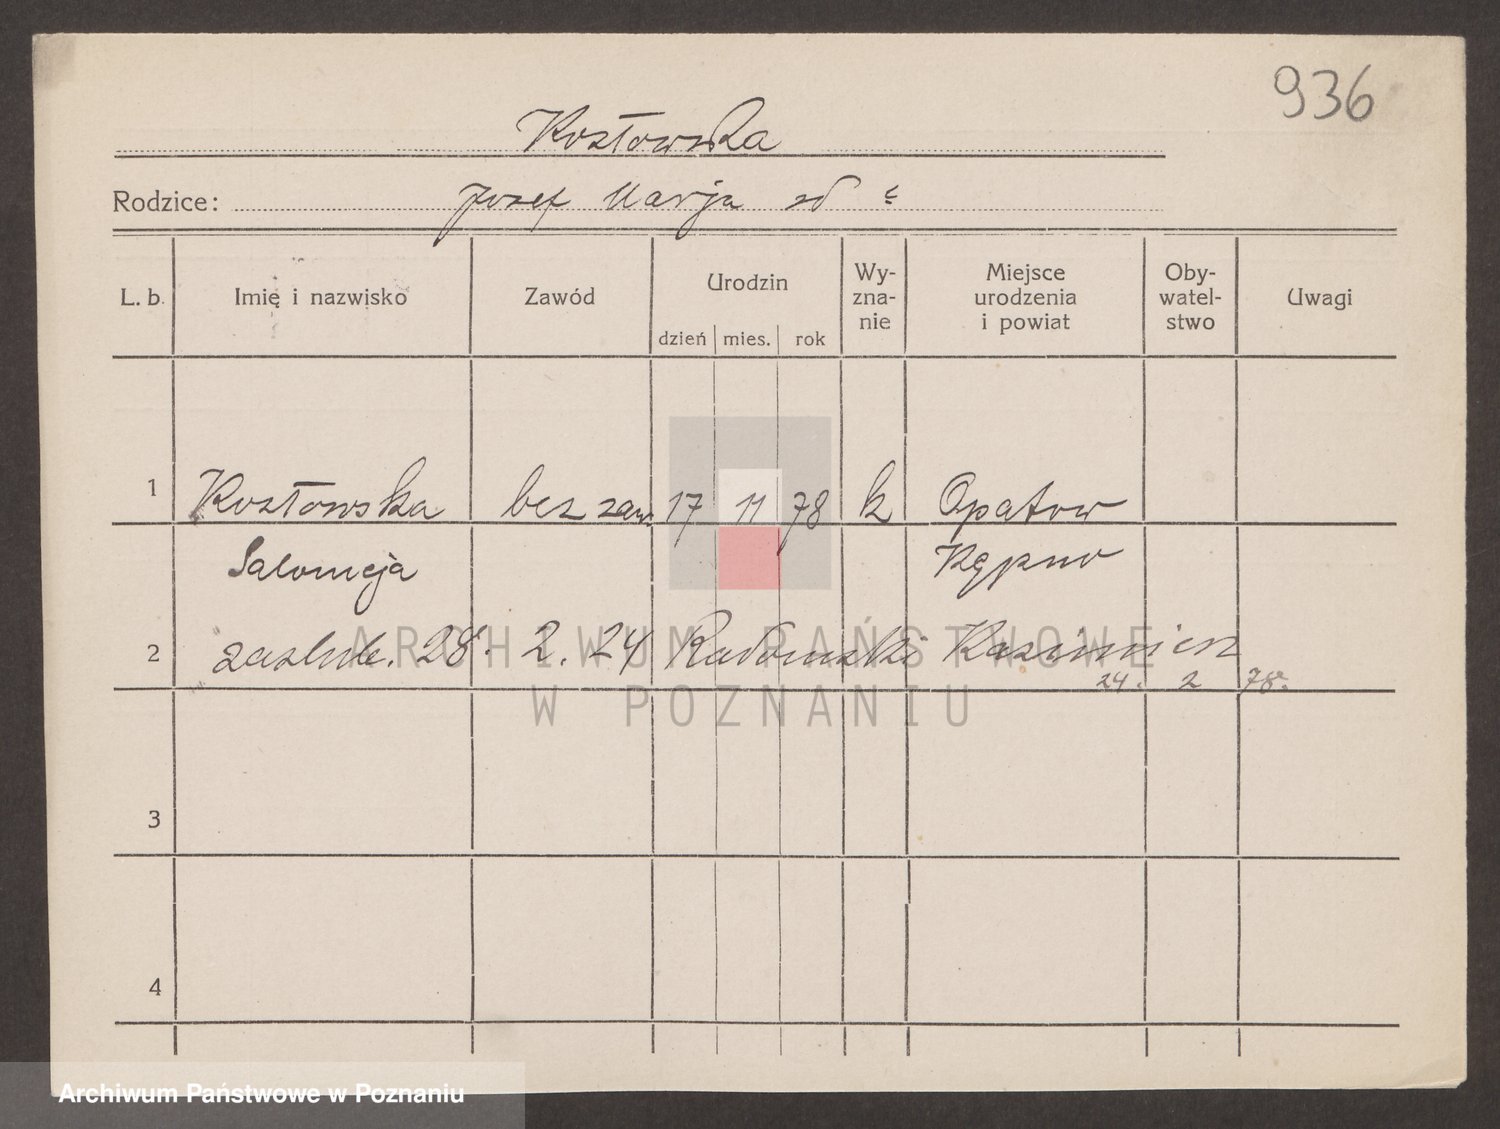 936
Kozłowska
Rodzice: Jozef Marja zd
L. b. Imię i nazwisko Zawód Urodzin dzień mies. rok Wy-zna-nie Miejsce urodzenia i powiat Oby-watel-stwo Uwagi
1 Kozłowska bez zaw. 17 11 78 k Opatow
Salomeja Kępno
2 zaslub. 28. 2. 24 Radomski Kazimierz
24. 2 78.
3
4
ARCHIWUM PAŃSTWOWE
W POZNANIU
Archiwum Państwowe w Poznaniu